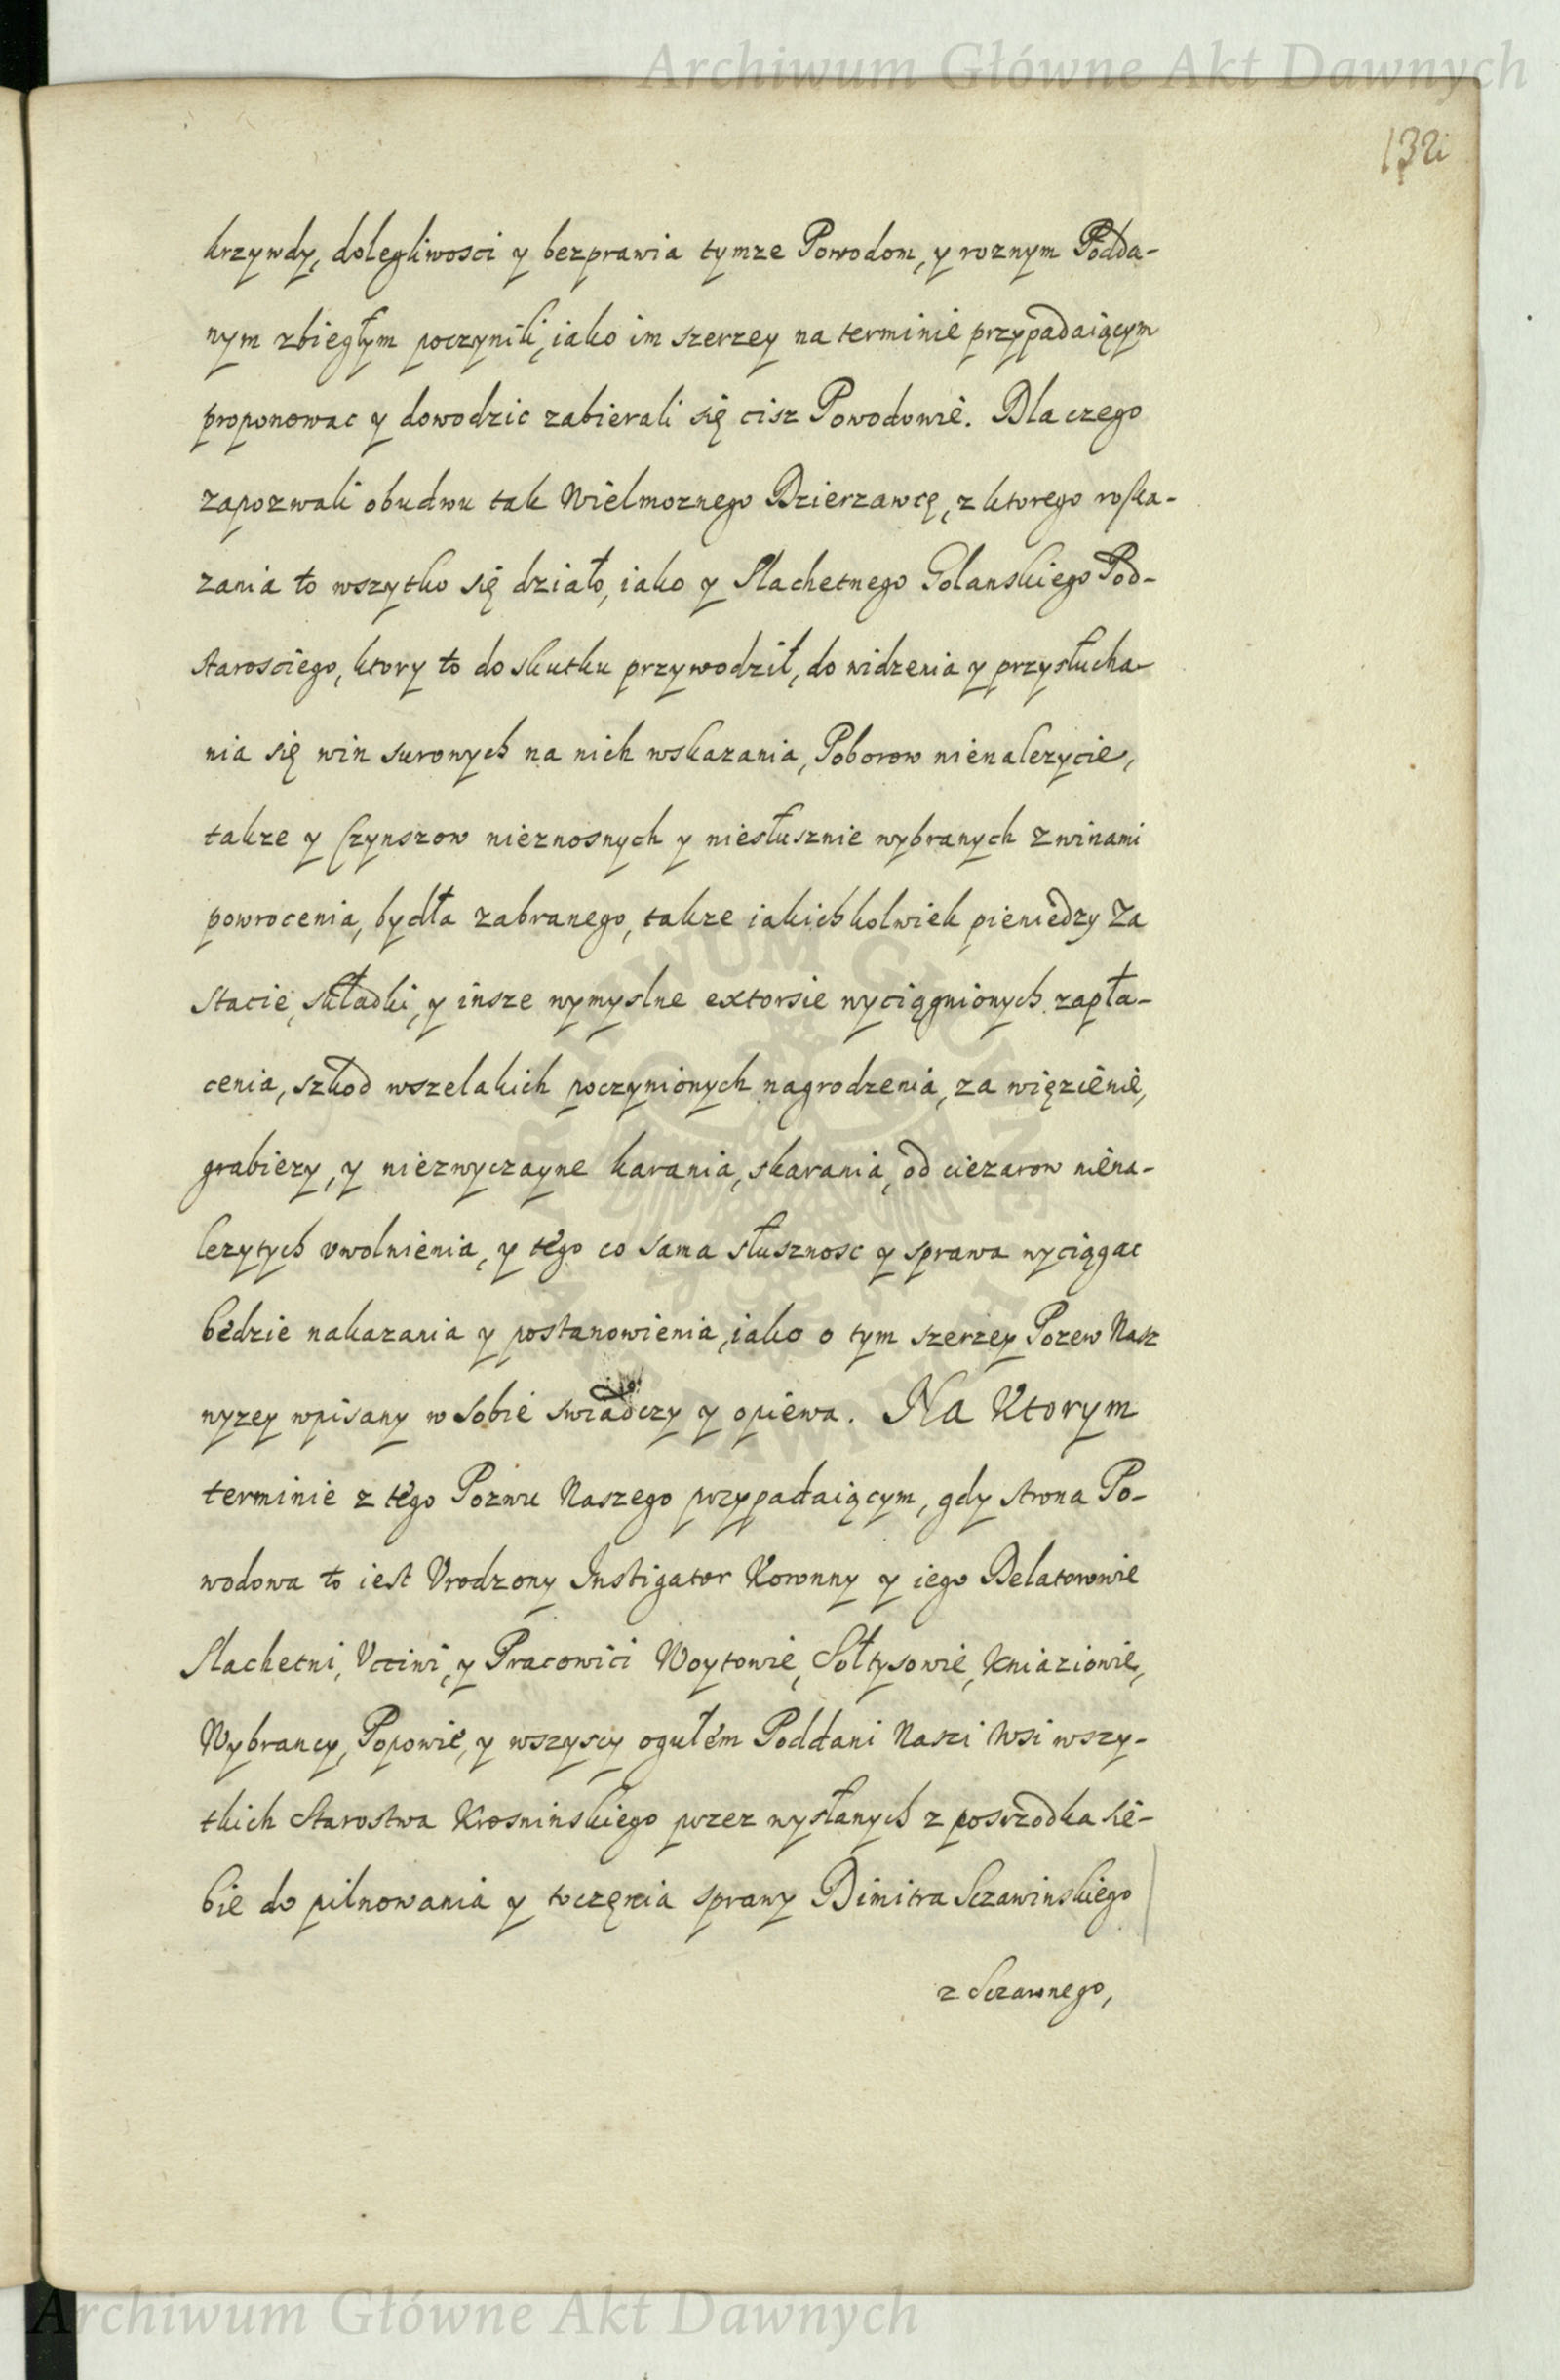 Archiwum Główne Akt Dawnych
132
krzywdy, dolegliwosci y bezprawia tymze Powodom, y roznym Podda-
nym zbiegłym poczynili, iako im szerzey na terminie przypadaiącym
proponowac y dowodzic zabierali się cisz Powodowie. Dla czego
zapozwali obudwu tak Wielmoznego Dzierzawcę, z ktorego roska-
zania to wszytko się działo, iako y Slachetnego Golanskiego Pod-
starosciego, ktory to do skutku przywodził, do widzenia y przysłucha-
nia się win surowych na nich wskazania, Poborow nienalezycie,
takze y Czynszow nieznosnych y niesłusznie wybranych z winami
powrocenia, bydła zabranego, takze iakichkolwiek pieniedzy za
Stacie, składki, y insze wymyslne extorsie wyciągnionych zapła-
cenia, szkod wszelakich poczynionych nagrodzenia, za więzienie,
grabiezy, y niezwyczayne karania, skarania, od ciezarow niena-
lezytych uwolnienia, y tego co sama słusznosc y sprawa wyciągac
bedzie nakazania y postanowienia, iako o tym szerzey Pozew Nasz
wyzey wpisany w sobie swiadczy y opiewa. Na Ktorym
terminie z tego Pozwu Naszego przypadaiącym, gdy strona Po-
wodowa to iest Vrodzony Instigator Koronny y iego Delatorowie
Slachetni, Vcciwi, y Pracowici Woytowie, Sołtysowie, Kniaziowie,
Wybrancy, Popowie, y wszyscy ogułem Poddani Naszi Wsi wszy-
tkich Starostwa Krosninskiego przez wysłanych z posrzodka sie-
bie do pilnowania y toczęnia sprawy Dimitra Sczawinskiego
z Sczawnego,
ARCHIWUM GŁÓWNE AKT DAWNYCH
Archiwum Główne Akt Dawnych